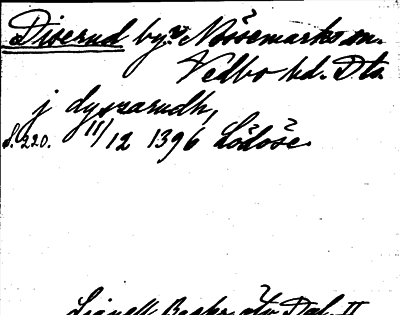 Diserud by, Nössemarks sn.
Vedbo hd. Dls.
j dyszarudh,
S. 220. 11/12 1396 Lödöse.
Lignell Beskr. öfv. Dal. II